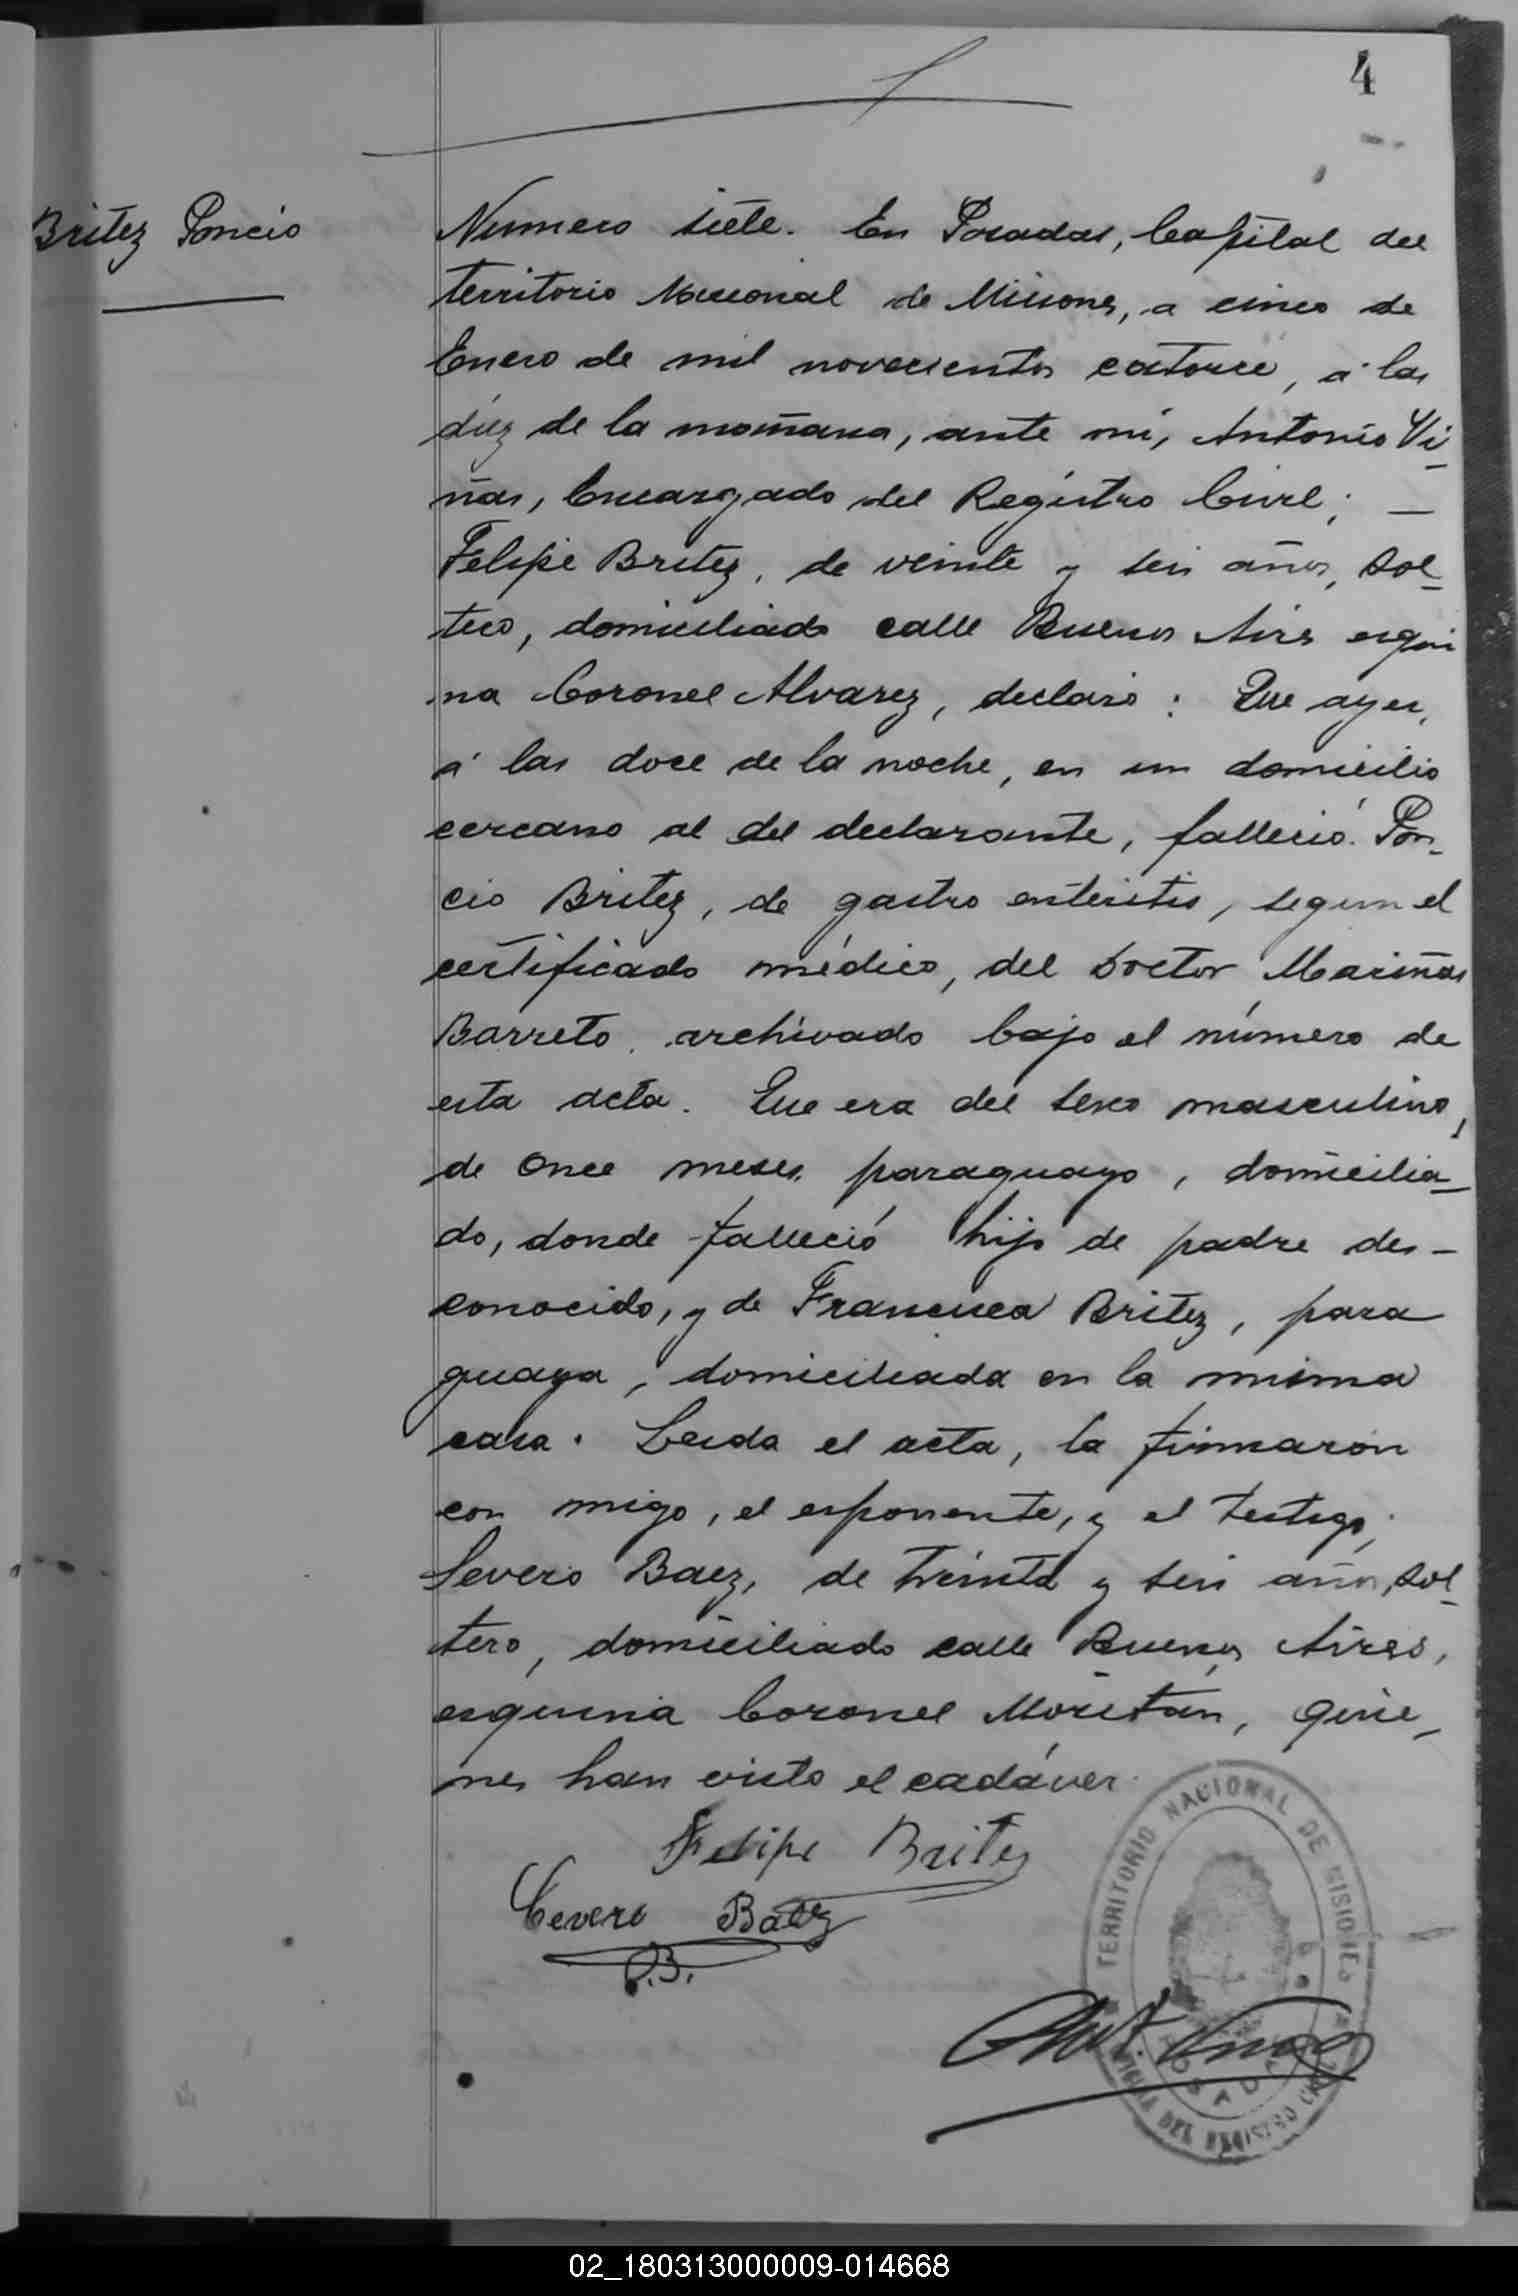 4
Britez Poncio
Numero siete. En Posadas, Capital del
territorio Nacional de Misiones, a cinco de
Enero de mil novecientos catorce, á las
diez de la mañana, ante mí, Antonio Vi-
ñas, Encargado del Registro Civil; —
Felipe Britez, de veinte y seis años, sol-
tero, domiciliado calle Buenos Aires esqui
na Coronel Alvarez, declaró: Que ayer,
á las doce de la noche, en un domicilio
cercano al del declarante, falleció Pon-
cio Britez, de gastro enteritis, segun el
certificado médico, del Doctor Mariñas
Barreto, archivado bajo el número de
esta acta. Que era del sexo masculino,
de once meses, paraguayo, domicilia-
do, donde falleció hijo de padre des-
conocido, y de Francisca Britez, para
guaya, domiciliada en la misma
casa. Leida el acta, la firmaron
con migo, el esponente, y el testigo;
Severo Baez, de treinta y seis años, sol-
tero, domiciliado calle Buenos Aires,
esquina Coronel Moritán, quie-
nes han visto el cadáver.
Felipe Britez
Cevero Baez
P.B.
Ant. Viñas
TERRITORIO NACIONAL DE MISIONES
POSADAS
DEL REGISTRO CIVIL
02_180313000009-014668